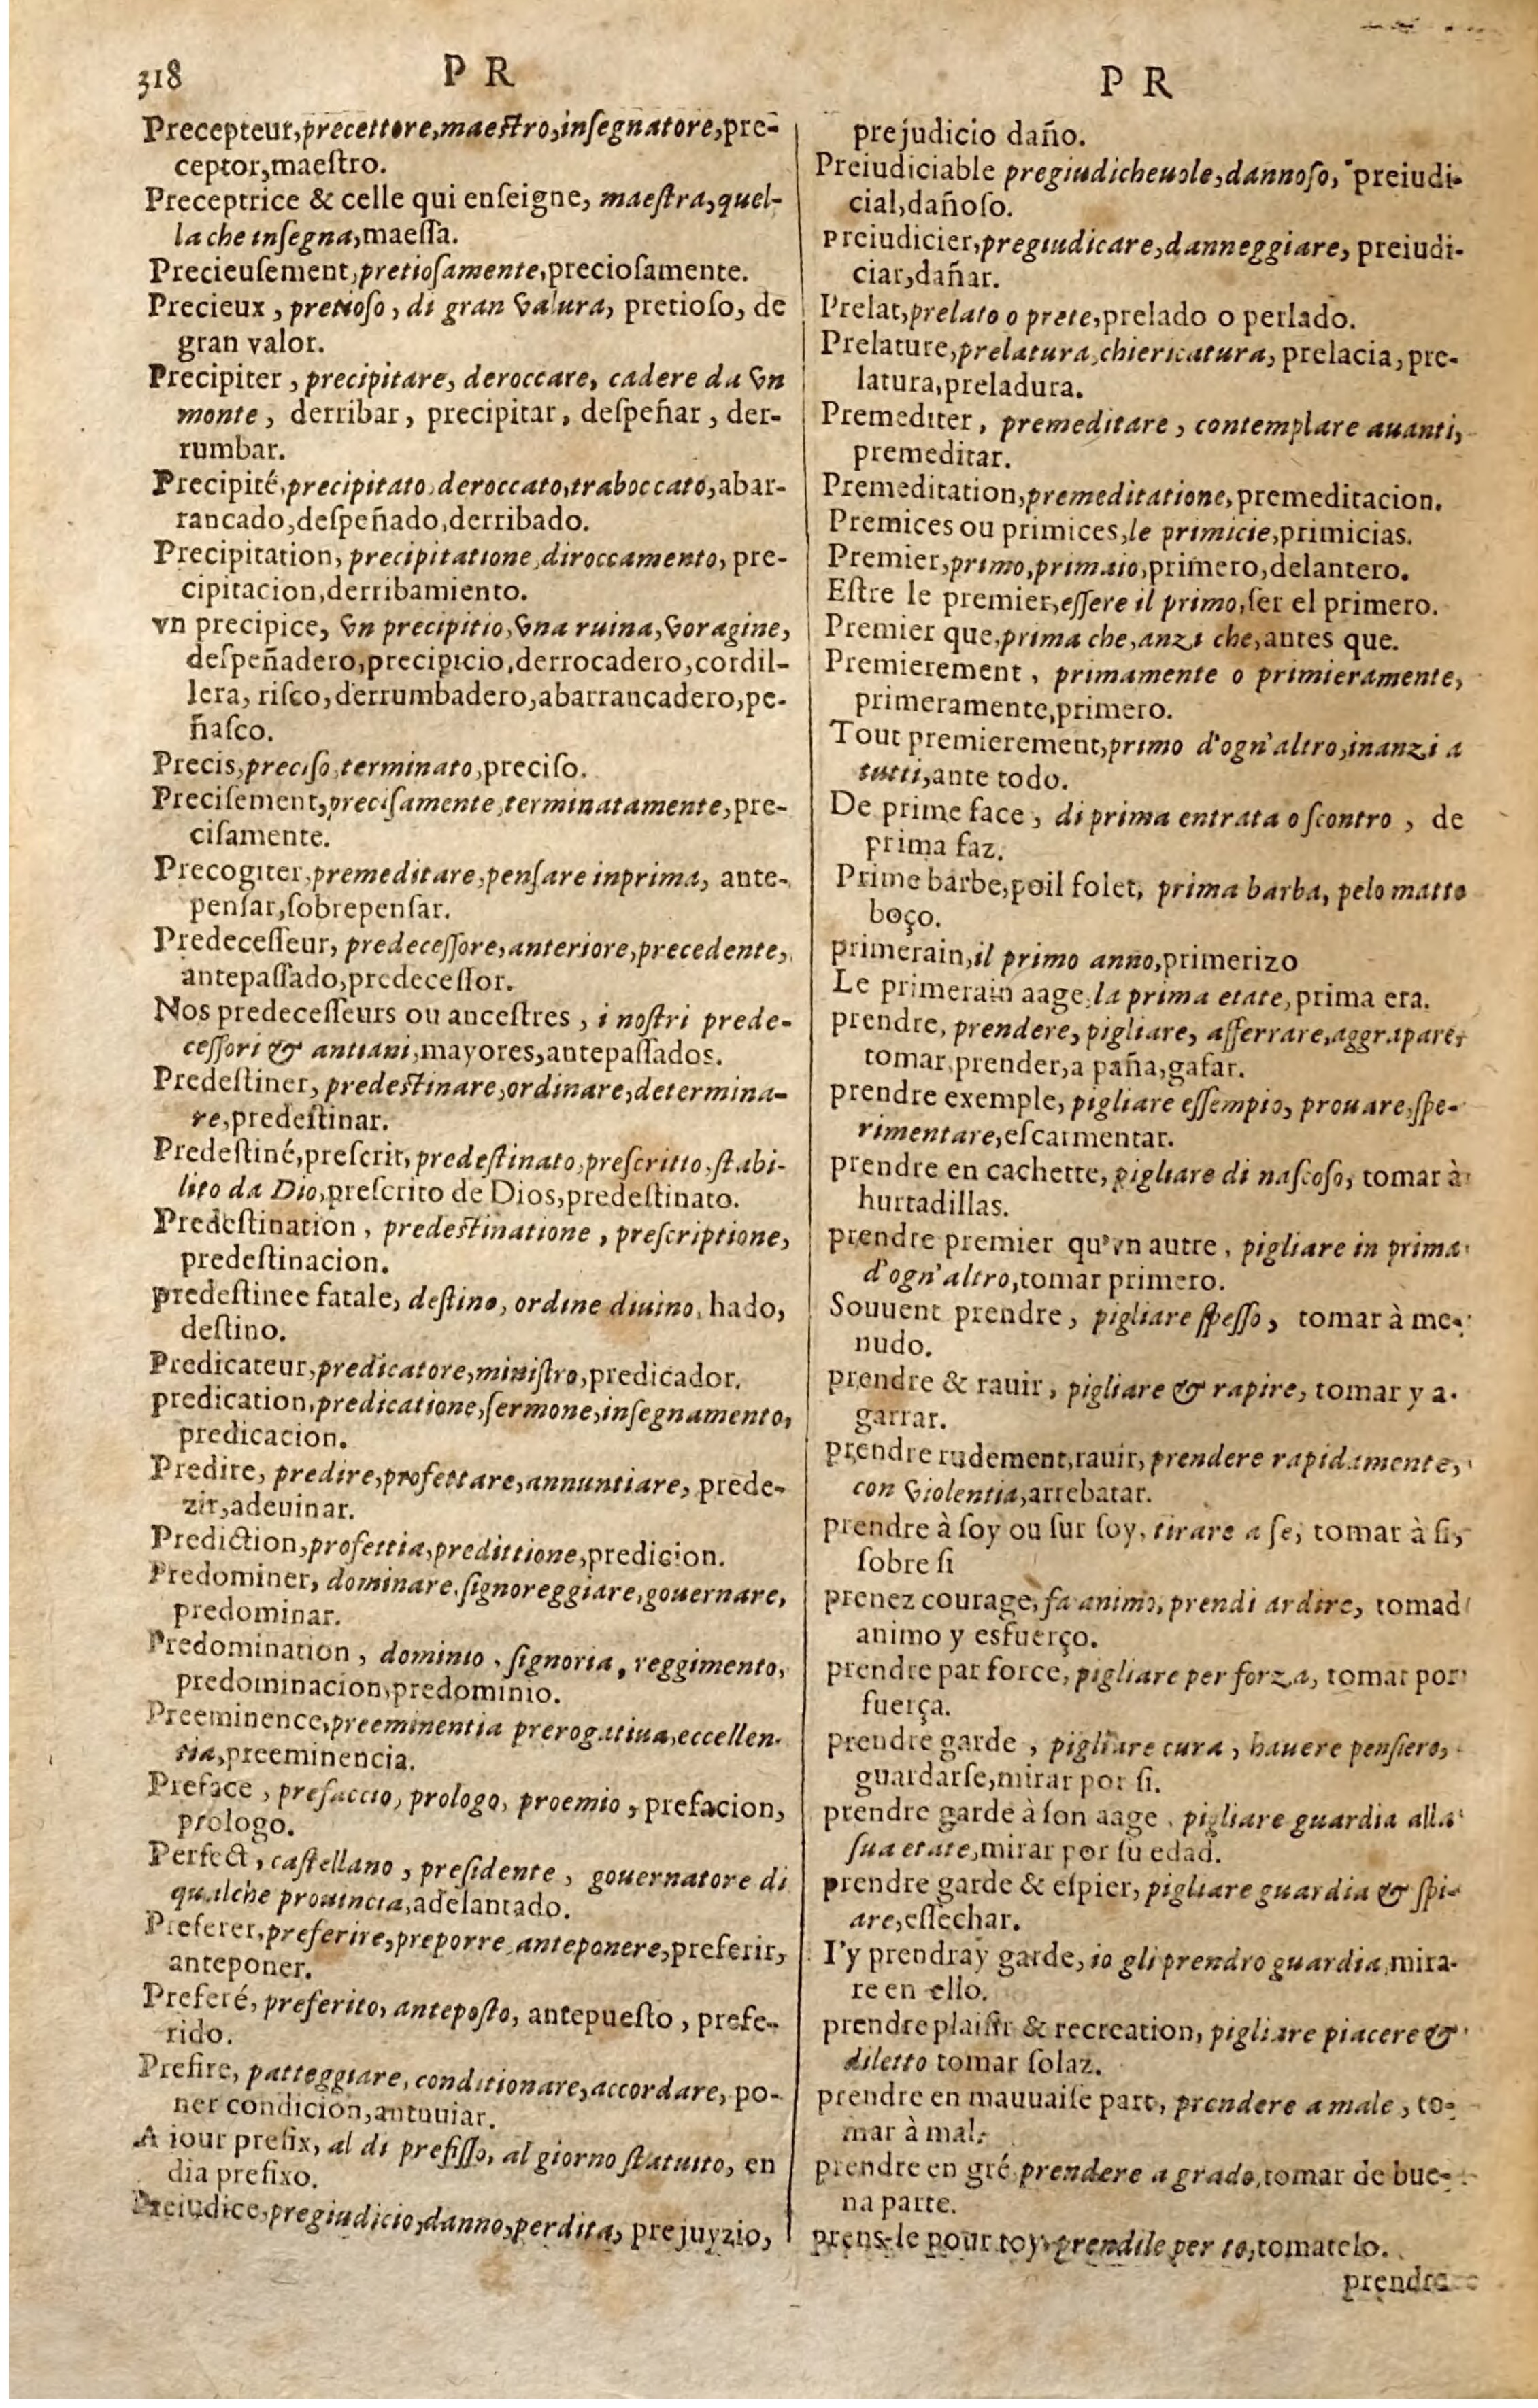 318
P R
Precepteur, precettore, maestro, inſegnatore, pre-
ceptor, maeſtro.
Preceptrice & celle qui enſeigne, maeſtra, quel-
la che inſegna, maeſſa.
Precieuſement, pretioſamente, precioſamente.
Precieux, pretioſo, di gran valura, pretioſo, de
gran valor.
Precipiter, precipitare, deroccare, cadere da vn
monte, derribar, precipitar, deſpeñar, der-
rumbar.
Precipité, precipitato, deroccato, traboccato, abar-
rancado, deſpeñado, derribado.
Precipitation, precipitatione, diroccamento, pre-
cipitacion, derribamiento.
vn precipice, vn precipitio, vna ruina, voragine,
deſpeñadero, precipicio, derrocadero, cordil-
lera, riſco, derrumbadero, abarrancadero, pe-
ñaſco.
Precis, preciſo, terminato, preciſo.
Preciſement, preciſamente, terminatamente, pre-
ciſamente.
Precogiter, premeditare, penſare inprima, ante-
penſar, ſobrepenſar.
Predeceſſeur, predeceſſore, anteriore, precedente,
antepaſſado, predeceſſor.
Nos predeceſſeurs ou anceſtres, i noſtri prede-
ceſſori & antiani, mayores, antepaſſados.
Predeſtiner, predeſtinare, ordinare, determina-
re, predeſtinar.
Predeſtiné, preſcrit, predeſtinato, preſcritto, ſtabi-
lito da Dio, preſcrito de Dios, predeſtinato.
Predeſtination, predeſtinatione, preſcriptione,
predeſtinacion.
predeſtinee fatale, deſtino, ordine diuino, hado,
deſtino.
Predicateur, predicatore, miniſtro, predicador.
predication, predicatione, ſermone, inſegnamento,
predicacion.
Predire, predire, profettare, annuntiare, prede-
zir, adeuinar.
Prediction, profettia, predittione, predicion.
Predominer, dominare, ſignoreggiare, gouernare,
predominar.
Predomination, dominio, ſignoria, reggimento,
predominacion, predominio.
Preeminence, preeminentia prerogatiua, eccellen-
tia, preeminencia.
Preface, prefaccio, prologo, proemio, prefacion,
prologo.
Perfect, caſtellano, preſidente, gouernatore di
qualche prouincia, adelantado.
Preferer, preferire, preporre, anteponere, preferir,
anteponer.
Preferé, preferito, antepoſto, antepueſto, prefe-
rido.
Prefire, patteggiare, conditionare, accordare, po-
ner condicion, antuuiar.
A iour prefix, al di prefiſſo, al giorno ſtatuito, en
dia prefixo.
Preiudice, pregiudicio, danno, perdita, prejuyzio,
P R
prejudicio daño.
Preiudiciable pregiudicheuole, dannoſo, preiudi-
cial, dañoſo.
Preiudicier, pregiudicare, danneggiare, preiudi-
ciar, dañar.
Prelat, prelato o prete, prelado o perlado.
Prelature, prelatura, chiericatura, prelacia, pre-
latura, preladura.
Premediter, premeditare, contemplare auanti,
premeditar.
Premeditation, premeditatione, premeditacion.
Premices ou primices, le primicie, primicias.
Premier, primo, primaio, primero, delantero.
Eſtre le premier, eſſere il primo, ſer el primero.
Premier que, prima che, anzi che, antes que.
Premierement, primamente o primieramente,
primeramente, primero.
Tout premierement, primo d'ogn'altro, inanzi a
tutti, ante todo.
De prime face, di prima entrata o ſcontro, de
prima faz.
Prime barbe, poil folet, prima barba, pelo matto
boço.
primerain, il primo anno, primerizo
Le primerain aage, la prima etate, prima era.
prendre, prendere, pigliare, afferrare, aggrapare,
tomar, prender, a paña, gafar.
prendre exemple, pigliare eſſempio, prouare, ſpe-
rimentare, eſcarmentar.
prendre en cachette, pigliare di naſcoſo, tomar à
hurtadillas.
prendre premier qu'vn autre, pigliare in prima
d'ogn'altro, tomar primero.
Souuent prendre, pigliare ſpeſſo, tomar à me-
nudo.
prendre & rauir, pigliare & rapire, tomar y a-
garrar.
prendre rudement, rauir, prendere rapidamente,
con violentia, arrebatar.
prendre à ſoy ou ſur ſoy, tirare a ſe, tomar à ſi,
ſobre ſi
prenez courage, fa animo, prendi ardire, tomad
animo y esfuerço.
prendre par force, pigliare per forza, tomar por
fuerça.
prendre garde, pigliare cura, hauere penſiero,
guardarſe, mirar por ſi.
prendre garde à ſon aage, pigliare guardia alla
ſua etate, mirar por ſu edad.
prendre garde & eſpier, pigliare guardia & ſpi-
are, eſſechar.
I'y prendray garde, io gli prendro guardia, mira-
re en ello.
prendre plaiſir & recreation, pigliare piacere &
diletto tomar ſolaz.
prendre en mauuaiſe part, prendere a male, to-
mar à mal.
prendre en gré prendere a grado, tomar de bue-
na parte.
prens-le pour toy, prendile per te, tomatelo.
prendre